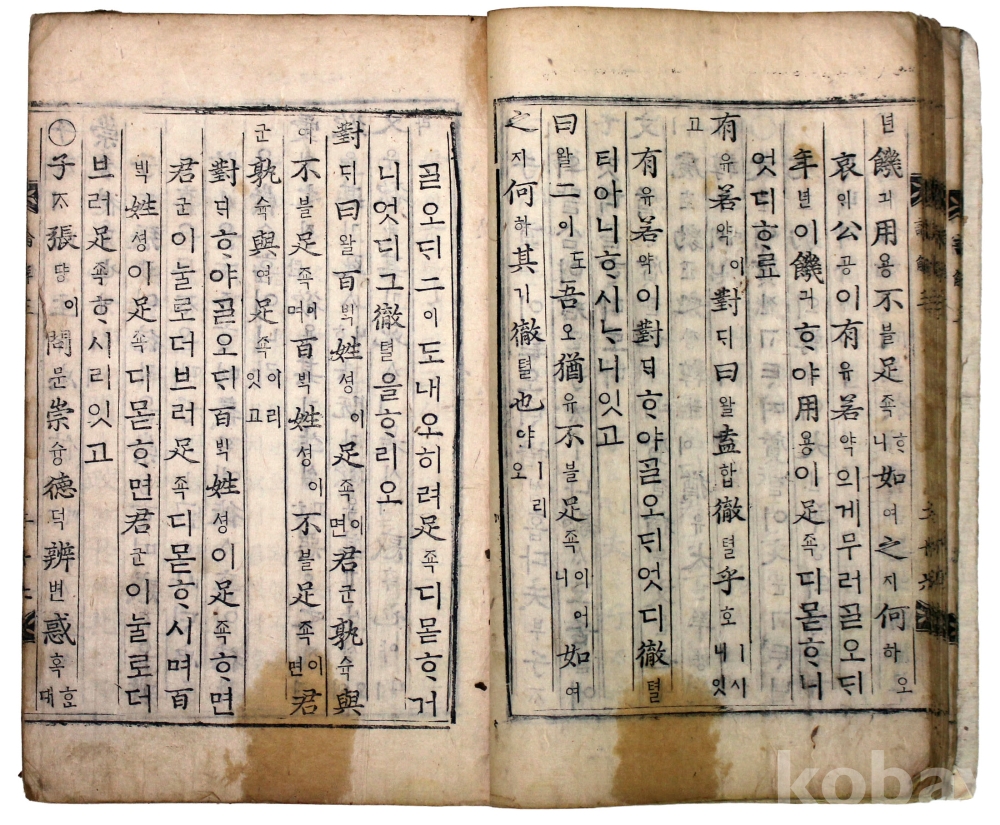 년饑긔用용不블足죡ᄒᆞ니如여之지何하오
哀ᄋᆡ公공이有유若약의게무러ᄀᆞᆯ오ᄃᆡ
年년이饑긔ᄒᆞ야用용이足죡디몯ᄒᆞ니
엇디ᄒᆞ료
有유若약이對ᄃᆡ曰왈盍합徹텰乎호ㅣ시니잇
고
有유若약이對ᄃᆡᄒᆞ야ᄀᆞᆯ오ᄃᆡ엇디徹텰
티아니ᄒᆞ시ᄂᆞ니잇고
曰왈二이도吾오猶유不블足죡이어니如여
之지何하其기徹텰也야ㅣ리오
ᄀᆞᆯ오ᄃᆡ二이도내오히려足죡디몯ᄒᆞ거
니엇디그徹텰을ᄒᆞ리오
對ᄃᆡ曰왈百ᄇᆡᆨ姓셩이足죡이면君군孰슉與
여不블足죡이며百ᄇᆡᆨ姓셩이不블足죡이면君
군孰슉與여足죡이리잇고
對ᄃᆡᄒᆞ야ᄀᆞᆯ오ᄃᆡ百ᄇᆡᆨ姓셩이足죡ᄒᆞ면
君군이눌로더브러足죡디몯ᄒᆞ시며百
ᄇᆡᆨ姓셩이足죡디몯ᄒᆞ면君군이눌로더
브러足죡ᄒᆞ시리잇고
○子ᄌᆞ張댱이問문崇슝德덕辨변惑혹ᄒᆞᆫ대